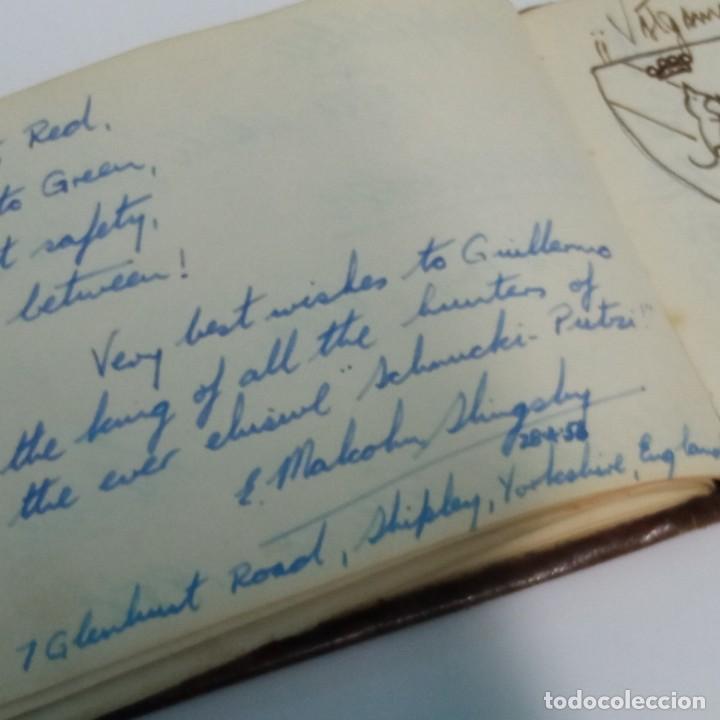 Red,
to Green,
safety,
between!
Very best wishes to Guillermo
the king of all the hunters of
the ever elusive "Schnucki-Putzi"
E. Malcolm Slingsby
28-4-56
7 Glenhurst Road, Shipley, Yorkshire, England
todocoleccion.net